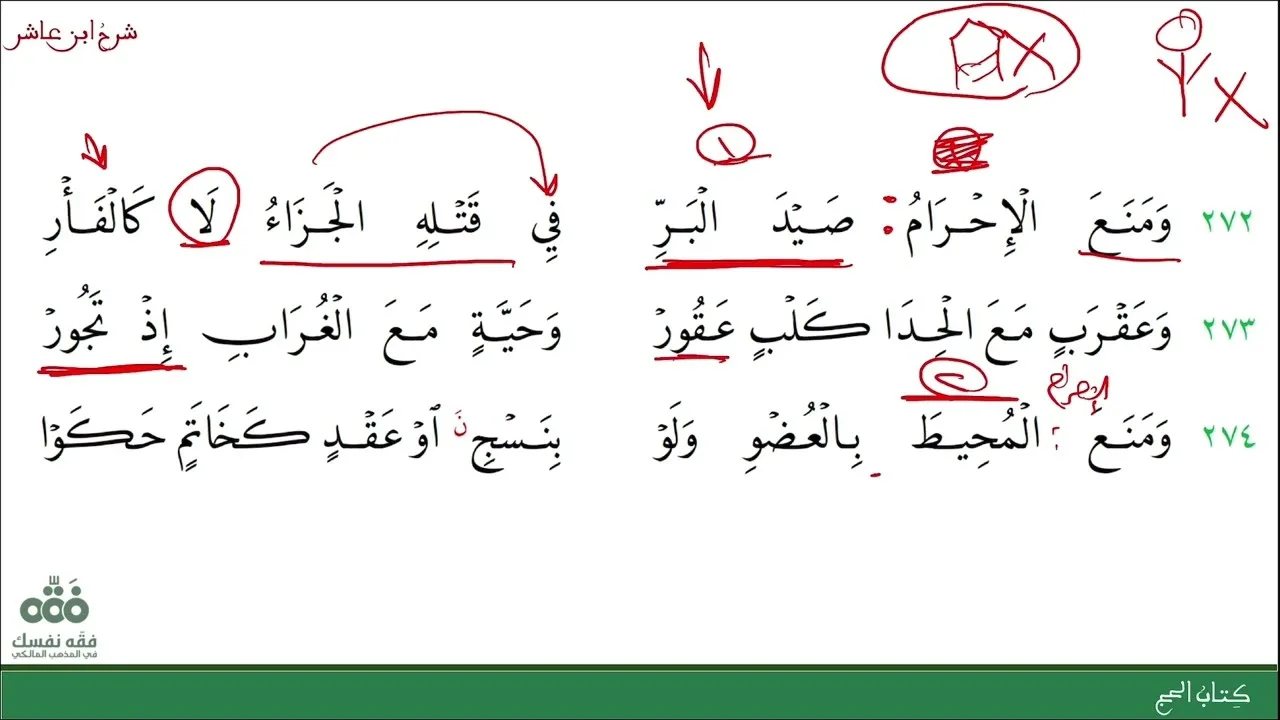 شرح ابن عاشر
١
٢٧٢ وَمَنَعَ الْإِحْرَامُ: صَيْدَ الْبَرِّ فِي قَتْلِهِ الْجَزَاءُ لَا كَالْفَأْرِ
٢٧٣ وَعَقْرَبٍ مَعَ الْحِدَا كَلْبٍ عَقُورْ وَحَيَّةٍ مَعَ الْغُرَابِ إِذْ تَجُورْ
٢
٢٧٤ وَمَنَعَ الْمُحِيطَ بِالْعُضْوِ وَلَوْ بِنَسْجِنَ اوْ عَقْدٍ كَخَاتَمٍ حَكَوْا
فقه نفسك
في المذهب المالكي
كِتابُ الحج